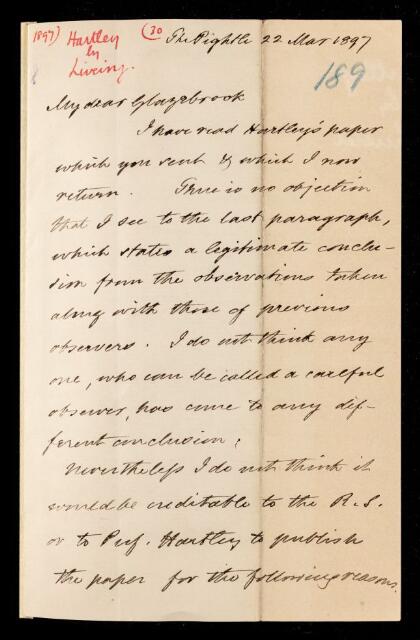 1897)
Hartley
by
Liveing.
(30
The Pightle 22 Mar 1897
189
My dear Glazebrook
I have read Hartley's paper
which you sent & which I now
return. There is no objection
that I see to the last paragraph,
which states a legitimate conclu-
sion from the observations taken
along with those of previous
observers. I do not think any
one, who can be called a careful
observer, has come to any dif-
ferent conclusion;
Nevertheless I do not think it
would be creditable to the R.S.
or to Prof. Hartley to publish
the paper for the following reasons.